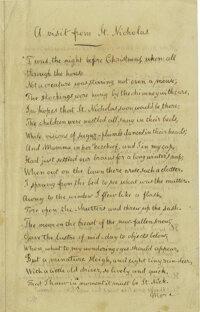 A visit from St. Nicholas
'Twas the night before Christmas, when all
through the house
Not a creature was stirring, not even a mouse;
The stockings were hung by the chimney with care,
In hopes that St. Nicholas soon would be there;
The children were nestled all snug in their beds,
While visions of sugar-plums danced in their heads;
And Mamma in her 'kerchief, and I in my cap,
Had just settled our brains for a long winter's nap;
When out on the lawn there arose such a clatter,
I sprang from the bed to see what was the matter.
Away to the window I flew like a flash,
Tore open the shutters and threw up the sash.
The moon on the breast of the new-fallen snow,
Gave the lustre of mid-day to objects below,
When, what to my wondering eyes should appear,
But a miniature sleigh, and eight tiny rein-deer,
With a little old driver, so lively and quick,
I knew in a moment it must be St. Nick.
More